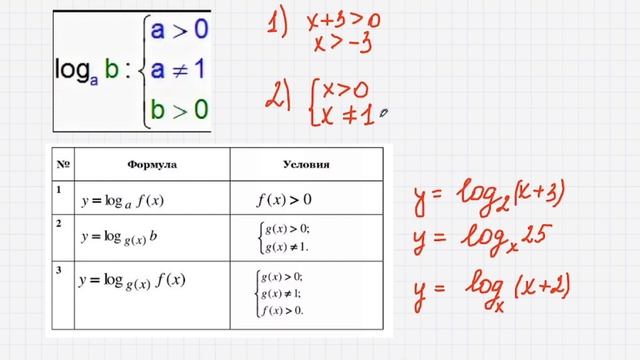 logₐ b : { a > 0
a ≠ 1
b > 0
1) x+3>0
x>-3
2) { x>0
x≠1
№ Формула Условия
1 y = logₐ f(x) f(x) > 0
2 y = log_{g(x)} b { g(x) > 0;
g(x) ≠ 1.
3 y = log_{g(x)} f(x) { g(x) > 0;
g(x) ≠ 1;
f(x) > 0.
y = log₂(x+3)
y = logₓ25
y = logₓ(x+2)